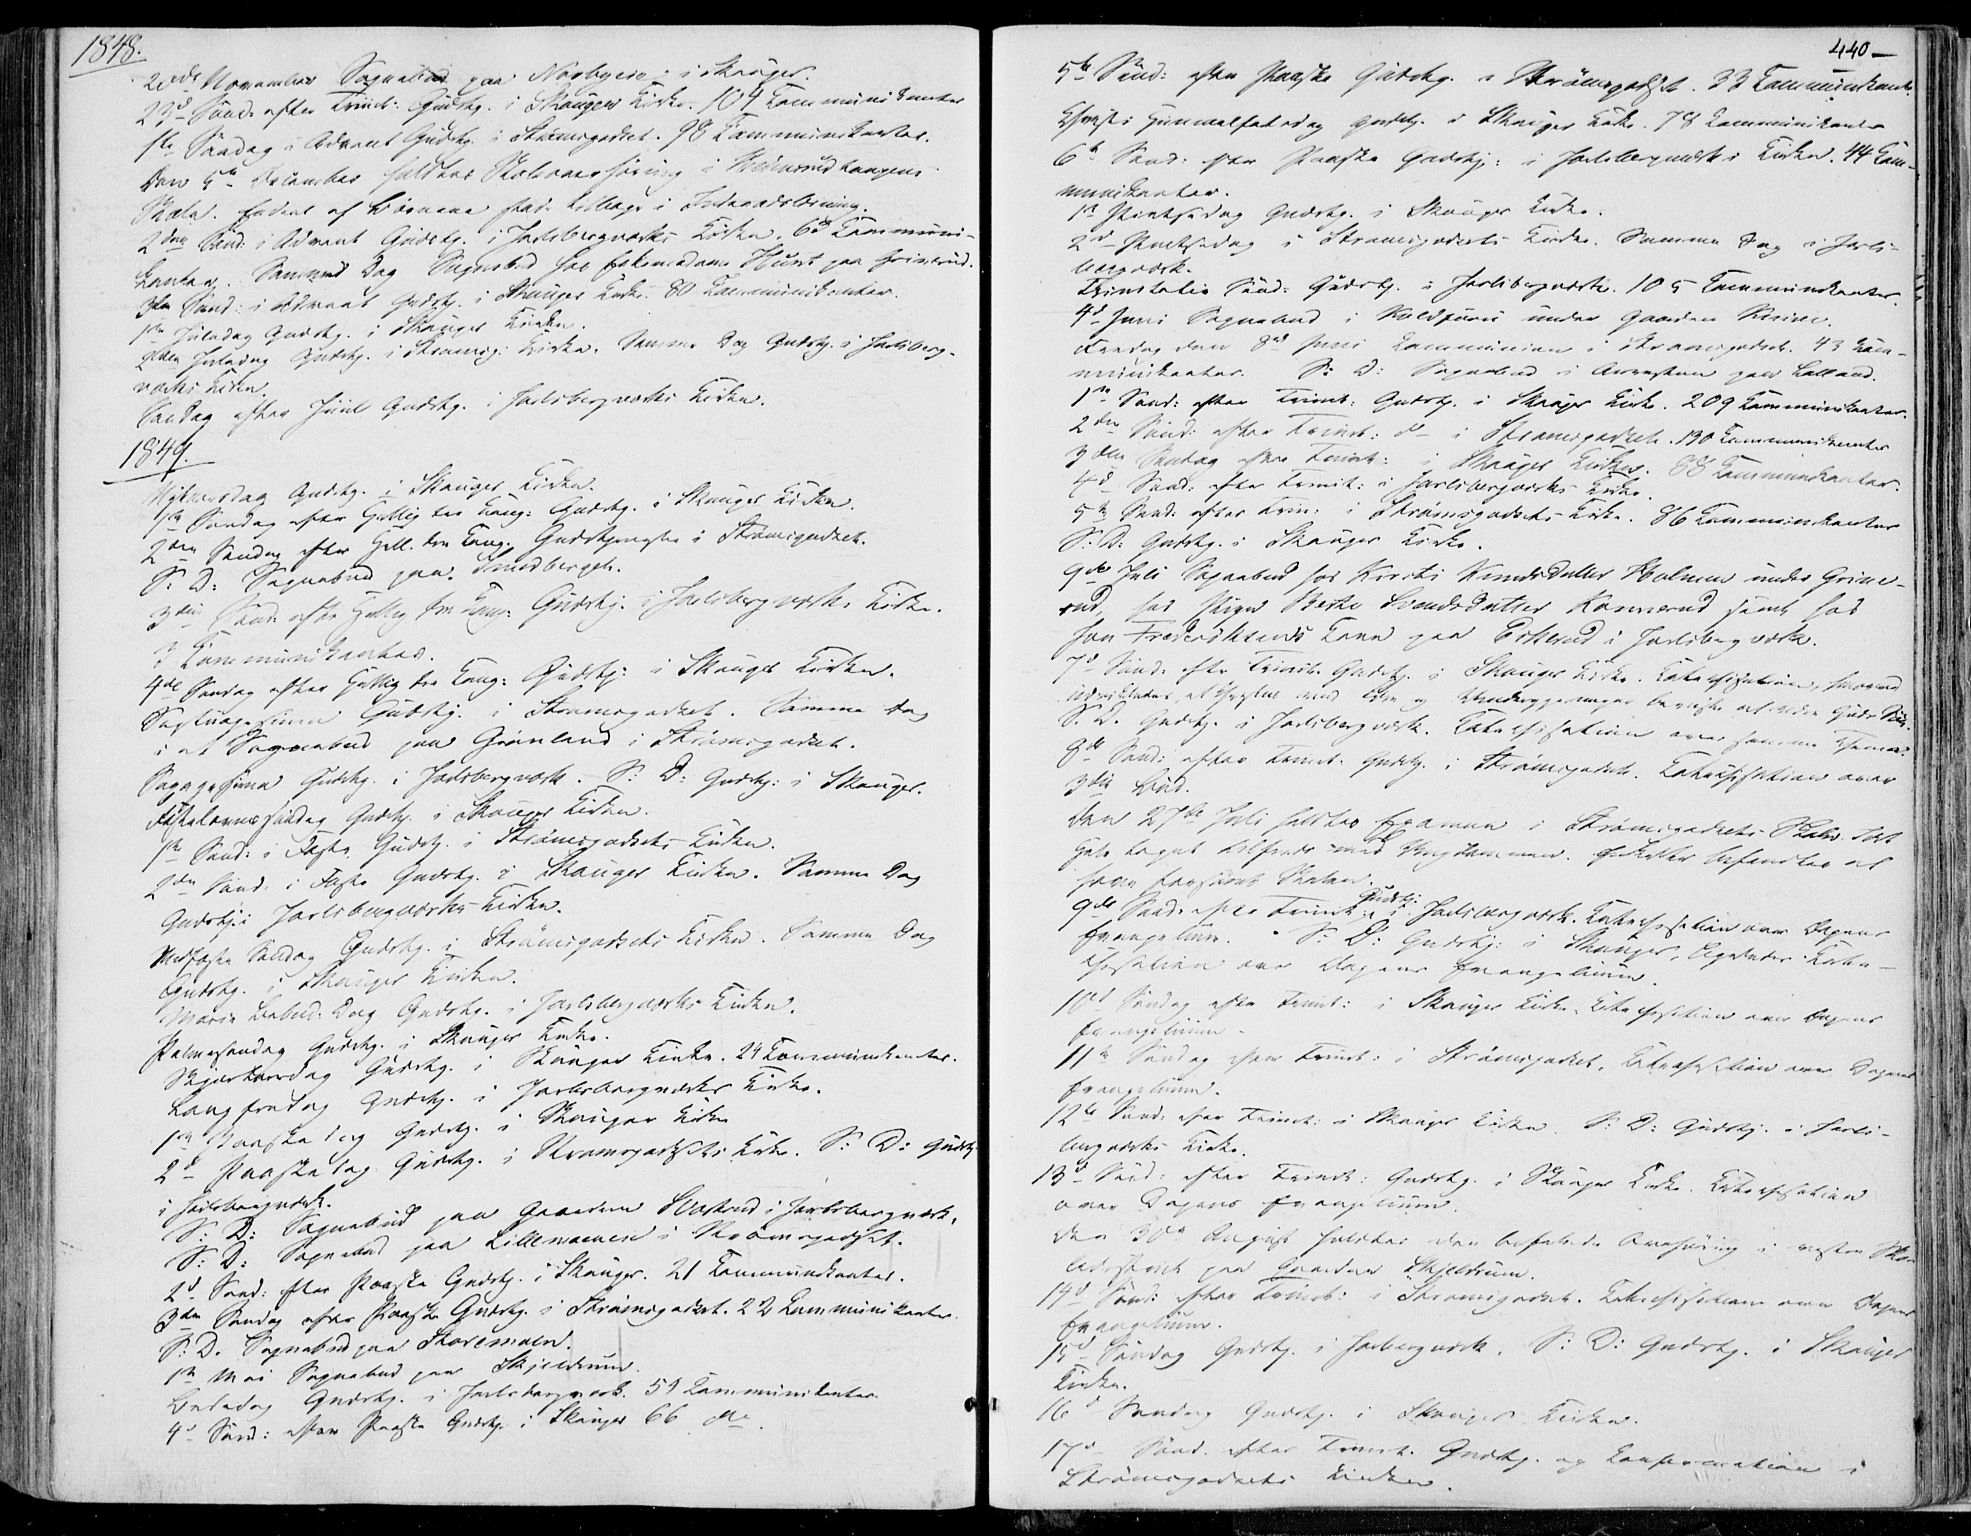 1848.
2den November Sognebud paa Norbyeie i Skouger.
23d Sönd. efter Trinit: Gudstj. i Skouger Kirke. 104 Communikanter
1ste Söndag i Advent Gudstj. i Strömsgodset. 98 Communikanter.
Den 5te December holdtes Skole
Skole. af Börnene
2den Sönd: i Advent Gudstj. i Jarlsbergværks Kirke. Communi-
kanter. Samme Dag Sognebud hos Madame
3die Sönd: i Advent Gudstj. i Skouger Kirke. 80 Communikanter.
1ste Juledag Gudstj. i Skouger Kirke.
2den Juledag Gudstj. i Strömsg: Kirke. Samme Dag Gudstj. i Jarlsberg-
værks Kirke.
Söndag efter Juul Gudstj. i Jarlsbergværks Kirke.
1849.
Nytaarsdag Gudstj. i Skouger Kirke.
1ste Söndag efter Hellig tre Kong: Gudstj. i Skouger Kirke.
2den Söndag efter Hell. tre Kong. Gudstjeneste i Strömsgodset.
S: D: Sognebud paa Smedberget.
3die Sönd. efter Hellig tre Kong: Gudstj. i Jarlsbergværks Kirke.
3 Communikanter.
4de Söndag efter Hellig tre Kong: Gudstj: i Skouger Kirke.
Septuagesima Gudstj. i Strömsgodset. Samme Dag
i et Sognebud paa Grönland i Strömsgodset.
Sexagesima Gudstj. i Jarlsbergværk. S: D: Gudstj: i Skouger.
Fastelavnssöndag Gudstj. i Skouger Kirke.
1ste Sönd: i Faste Gudstj. i Strömsgodsets Kirke.
2den Sönd: i Faste Gudstj. i Skouger Kirke. Samme Dag
Gudstj: i Jarlsbergværks Kirke.
Midfaste Söndag Gudstj. i Strömsgodsets Kirke. Samme Dag
Gudstj. i Skouger Kirke.
Mariæ Bebud. Dag Gudstj. i Jarlsbergværks Kirke.
Palmesöndag Gudstj. i Skouger Kirke.
Skjærtorsdag Gudstj. i Skouger Kirke. 24 Communikanter.
Langfredag Gudstj. i Jarlsbergværks Kirke.
1ste Paaskedag Gudstj. i Skouger Kirke
2d Paaskedag Gudstj. i Strömsgodsets Kirke. S: D: Gudstj
i Jarlsbergværk.
S: D: Sognebud paa Gaarden i Jarlsbergværk.
S: D: Sognebud paa i Strömsgodset.
2d Sönd: efter Paaske Gudstj. i Skouger. 21 Communikanter.
3die Söndag efter Paaske Gudstj. i Strömsgodset. 22 Communikanter.
S: D. Sognebud paa Storemoen.
1ste Mai Sognebud paa Skjeldrum.
Bededag Gudstj. i Jarlsbergværk. 54 Communikanter.
4d Sönd: efter Paaske Gudstj. i Skouger 66 do.
440
5te Sönd: efter Paaske Gudstj. i Strömsgodset. 33 Communikant.
Christi Himmelfartsdag Gudstj. i Skouger Kirke. 78 Communikanter
6te Sönd: efter Paaske Gudstj: i Jarlsbergværks Kirke. 44 Com-
munikanter.
1ste Pintsedag Gudstj. i Skouger Kirke.
2d Pintsedag i Strömsgodsets Kirke. Samme Dag i Jarls-
bergværk.
Trinitatis Sönd: Gudstj. i Jarlsbergværk. 105 Communikanter.
4d Juni Sognebud i under Gaarden
Fredag den 8de Juni Communion i Strömsgodset. 43 Com-
munikanter. S: D: Sognebud i
1ste Sönd: efter Trinit: Gudstj. i Skouger Kirke. 209 Communikanter.
2den Sönd: efter Trinit: d- i Strömsgodset. 130 Communikanter
3die Söndag efter Trinit: i Skouger Kirke. 88 Communikanter.
4d Sönd: efter Trinit: i Jarlsbergværks Kirke.
5te Sönd: efter Trin: i Strömsgodsets Kirke. 86 Communikanter
S: D: Gudstj. i Skouger Kirke.
9de Juli Sognebud hos Kirsti Knudsdatter Holmen under Grine-
rud, hos Pigen Berthe Svendsdatter samt hos
Jon Frederiksens Kone paa i Jarlsbergværk.
7d Sönd: efter Trinit. Gudstj. i Skouger Kirke. Catechisation,
S. D. Gudstj. i Jarlsbergværk. Catechisation over samme Thema.
8de Sönd: efter Trinit. Gudstj. i Strömsgodset. Catechisation over
3die Bud.
Den 27de Juli holdtes Examen i Strömsgodsets Skole.
tilfreds med Ungdommen.
Skolen.
9de Sönd. efter Trinit: Gudstj: i Jarlsbergværk. Catechisation over Dagens
Evangelium. S: D: Gudstj: i Skouger, Cate-
chisation over Dagens Evangelium.
10d Söndag efter Trinit: i Skouger Kirke. Catechisation over Dagens
Evangelium.
11te Söndag efter Trinit: i Strömsgodset, Catechisation over Dagens
Evangelium.
12te Sönd: efter Trinit: i Skouger Kirke. S: D: Gudstj. i Jarls-
bergværks Kirke.
13d Sönd: efter Trinit: Gudstj. i Skouger Kirke. Catechisation
over Dagens Evangelium.
Den 30te August holdtes den befalede i vestre Sko-
paa Gaarden Skjeldrum.
14d Sönd: efter Trinit: i Strömsgodset. Catechisation over Dagens
Evangelium.
15d Söndag Gudstj. i Jarlsbergværk. S: D: Gudstj. i Skouger
Kirke.
16d Söndag Gudstj. i Skouger Kirke.
17d Sönd. efter Trinit. Gudstj. og Confirmation i
Strömsgodsets Kirke.